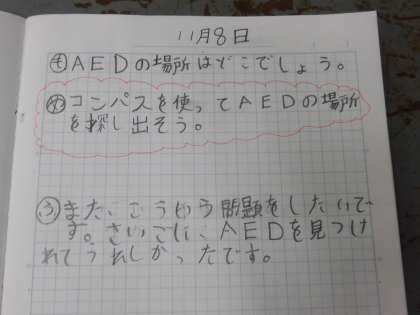 11月8日
も AEDの場所はどこでしょう。
め コンパスを使ってAEDの場所
を探し出そう。
ふ またこういう問題をしたいで
す。さいごに、AEDを見つけ
れてうれしかったです。